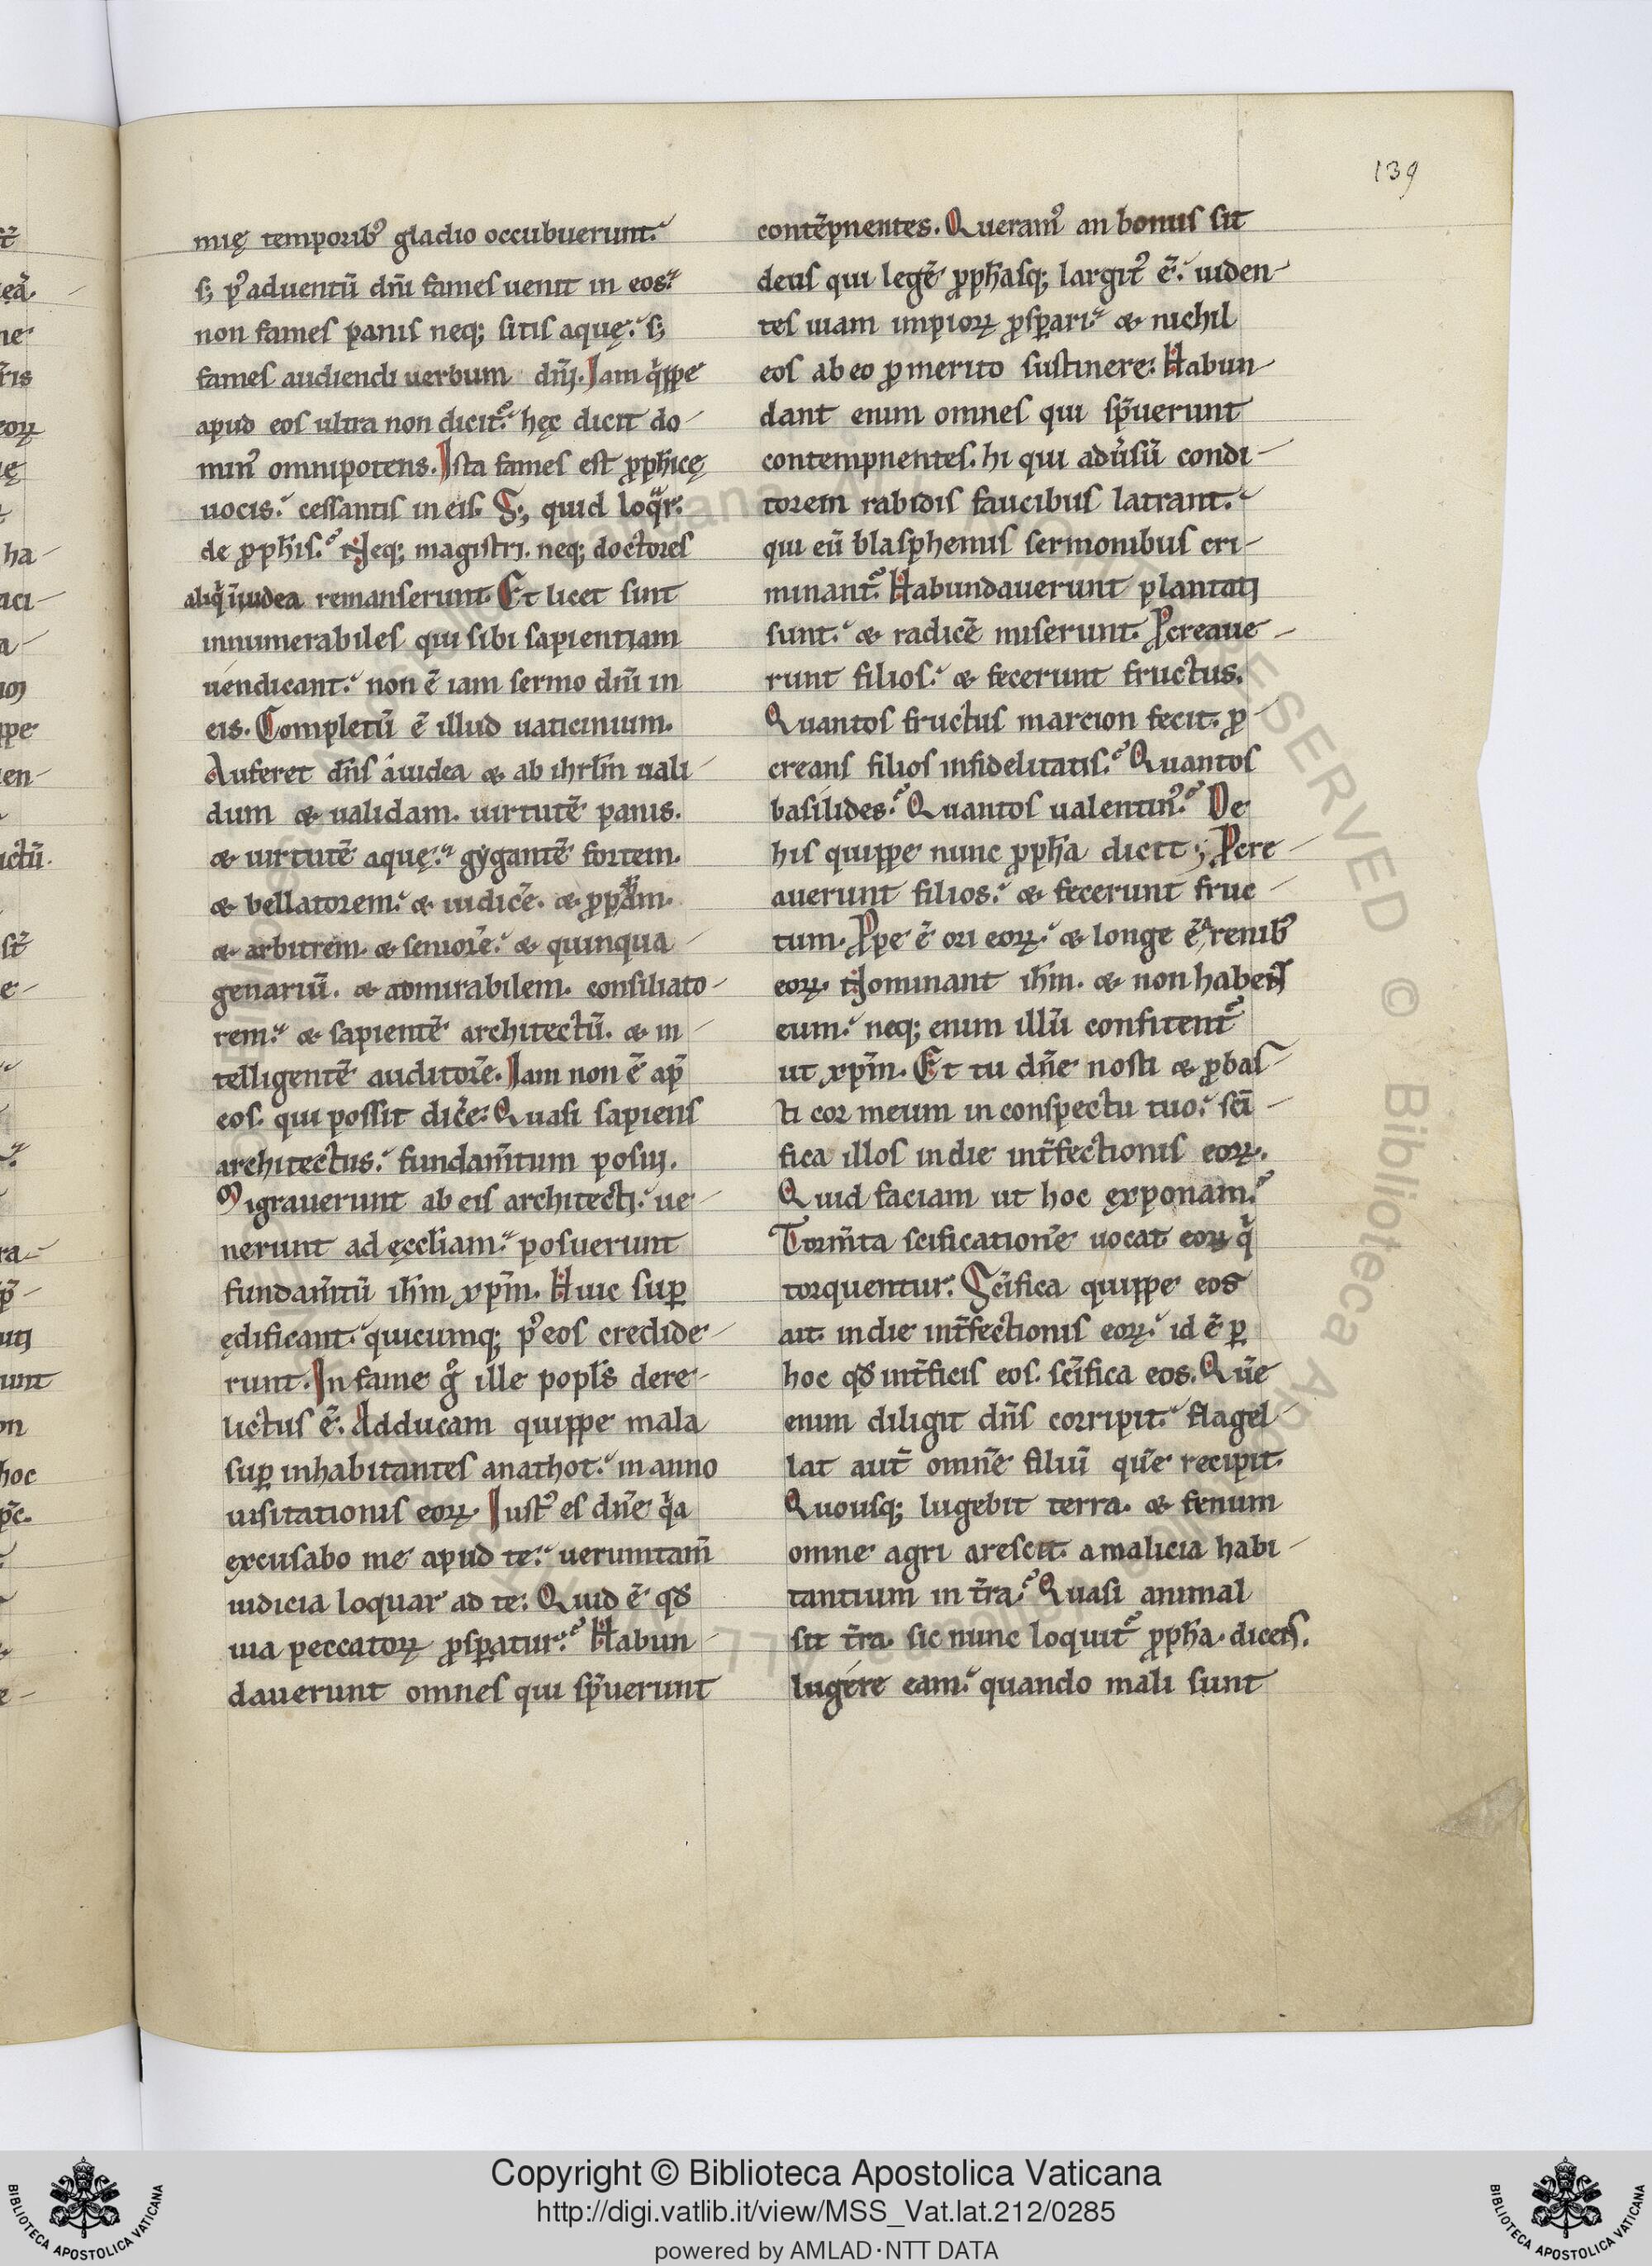 139
mię temporib᷒ gladio occubuerunt.
s; p᷒ aduentū dn̄i fames uenit in eos.
non fames panis neq; sitis aquę. s;
fames audiendi uerbum dn̄j. Jam q̍ppe
apud eos ultra non dicit᷒. hęc dicit do-
min᷒ omnipotens. Ista fames est ꝓph̄icę
uocis. cessantis in eis. S; quid loq̄r.
de ꝓph̄is. Neq; magistri. neq; doctores
aliq̍ iniudea remanserunt. Et licet sint
innumerabiles qui sibi sapientiam
uendicant. non ē iam sermo dn̄i in
eis. Completū ē illud uaticinium.
Auferet dn̄s áiudea & ab ihrl̄m uali-
dum & ualidam. uirtutē panis.
& uirtutē aquę. gygantē fortem.
& bellatorem. & iudicē. & ꝓph̄am.
& arbitrem. & seniorē. & quinqua-
genariū. & admirabilem. consiliato-
rem. & sapientē architectū. & in-
telligentē auditorē. Jam non ē ap̄
eos. qui possit dic̄e. Quasi sapiens
architectus. fundam̄tum posuj.
Migrauerunt ab eis architectj. ue-
nerunt ad ęccl̄iam. posuerunt
fundam̄tū ih̄m xp̄m. Huic suꝑ
ędificant. quicumq; p᷒ eos credide-
runt. In fame g̊ ille popl̄s dere-
lictus ē. Adducam quippe mala
suꝑ inhabitantes anathot. in anno
uisitationis eoꝝ. Iust᷒ es dn̄e q̍a
excusabo me apud te. uerumtam̄
iudicia loquar ad te. Quid ē qđ
uia peccatoꝝ ꝓsꝑatur. Habun-
dauerunt omnes qui sp̄uerunt
contēpnentes. Queram᷒ an bonus sit
deus qui legē ꝓph̄asq; largit᷒ ē. uiden-
tes uiam impioꝝ ꝓsꝑari. & nichil
eos ab eo ꝓ merito sustinere. Habun-
dant enim omnes qui sp̄uerunt
contempnentes. hi qui adu̍sū condi-
torem rabidis faucibus latrant.
qui eū blasphemis sermonibus cri-
minant᷒. Habundauerunt plantatj
sunt. & radicē miserunt. Ꝓcreaue-
runt filios. & fecerunt fructus.
Quantos fructus marcion fecit. ꝓ-
creans filios infidelitatis. Quantos
basilides. Quantos ualentin᷒. De
his quippe nunc ꝓph̄a dicit; Ꝓcre-
auerunt filios. & fecerunt fruc-
tum. Ꝓpe ē ori eoꝝ. & longe ē a renib᷒
eoꝝ. Nominant ih̄m. & non habent
eum. neq; enim illū confitent᷒
ut xp̄m. Et tu dn̄e nosti & ꝓbas-
ti cor meum in conspectu tuo. sc̄i-
fica illos in die int̄fectionis eoꝝ.
Quid faciam ut hoc exponam.
Torm̄ta sc̄ificationē uocat eoꝝ q̍
torquentur. Sc̄ifica quippe eos
ait. in die int̄fectionis eoꝝ. id ē ꝑ
hoc qđ int̄ficis eos. sc̄ifica eos. Quē
enim diligit dn̄s corripit. flagel-
lat aut̄ omnē filiū quē recipit.
Quousq; lugebit terra. & fenum
omne agri arescit. a malicia habi-
tantium in t̄ra. Quasi animal
sit t̄ra. sic nunc loquit᷒ ꝓph̄a. dicens.
lugére eam. quando mali sunt
Copyright © Biblioteca Apostolica Vaticana
http://digi.vatlib.it/view/MSS_Vat.lat.212/0285
powered by AMLAD·NTT DATA
BIBLIOTECA APOSTOLICA VATICANA
BIBLIOTECA APOSTOLICA VATICANA